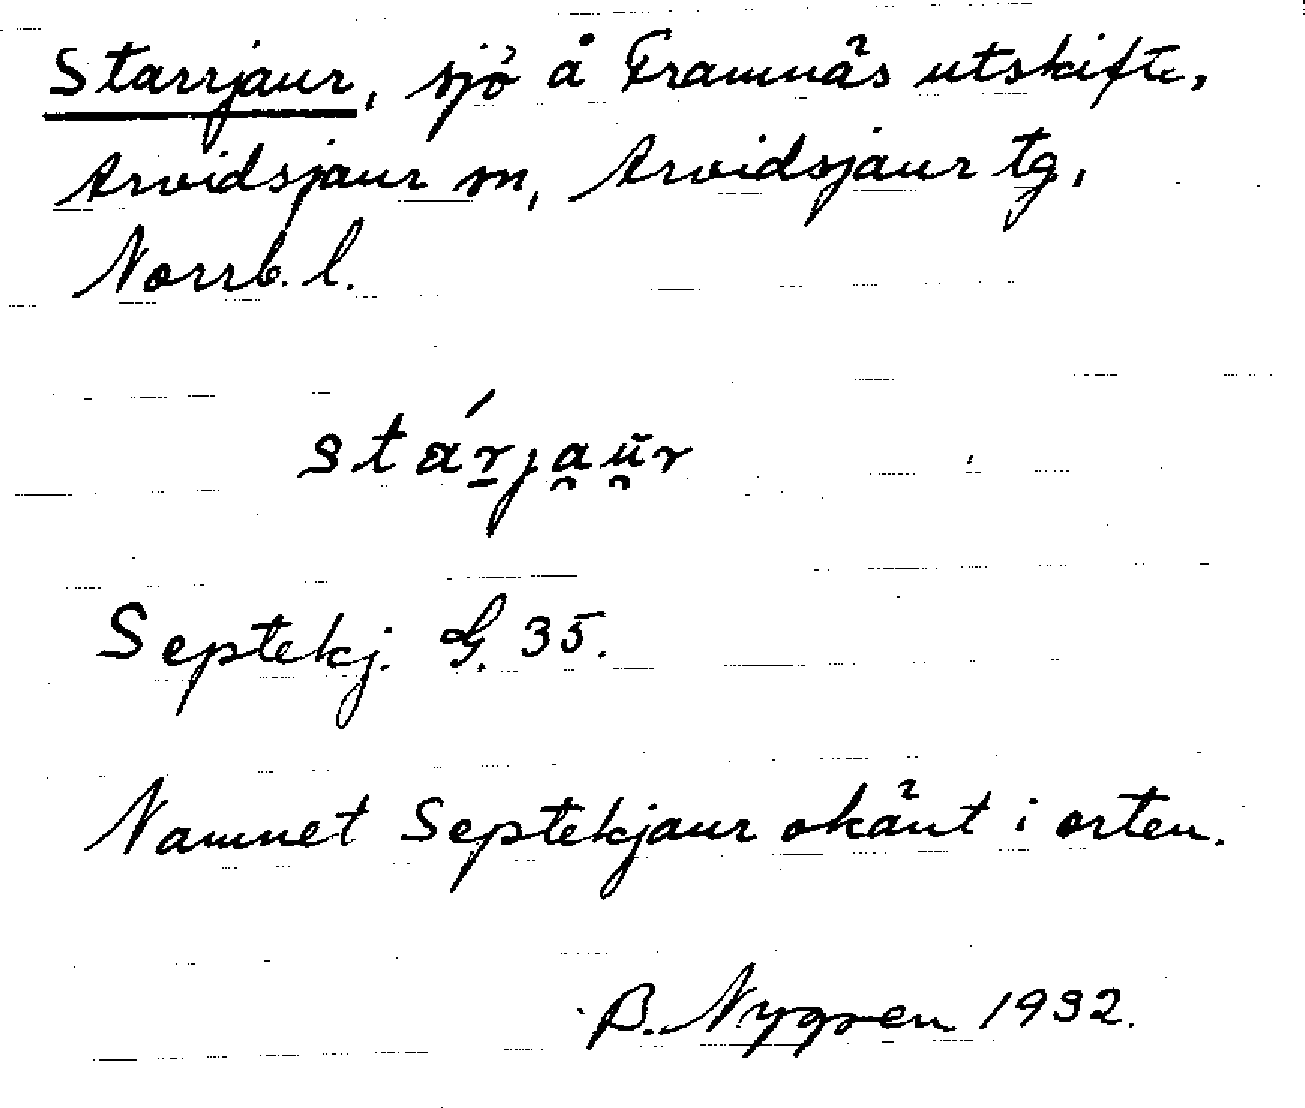 Starrjaur, sjö å Framnäs utskifte,
Arvidsjaur sn, Arvidsjaur tg,
Norrb. l.
stár̠ja̯ŭ̯r
Septekj. G. 35.
Namnet Septekjaur okänt i orten.
B. Nygren 1932.